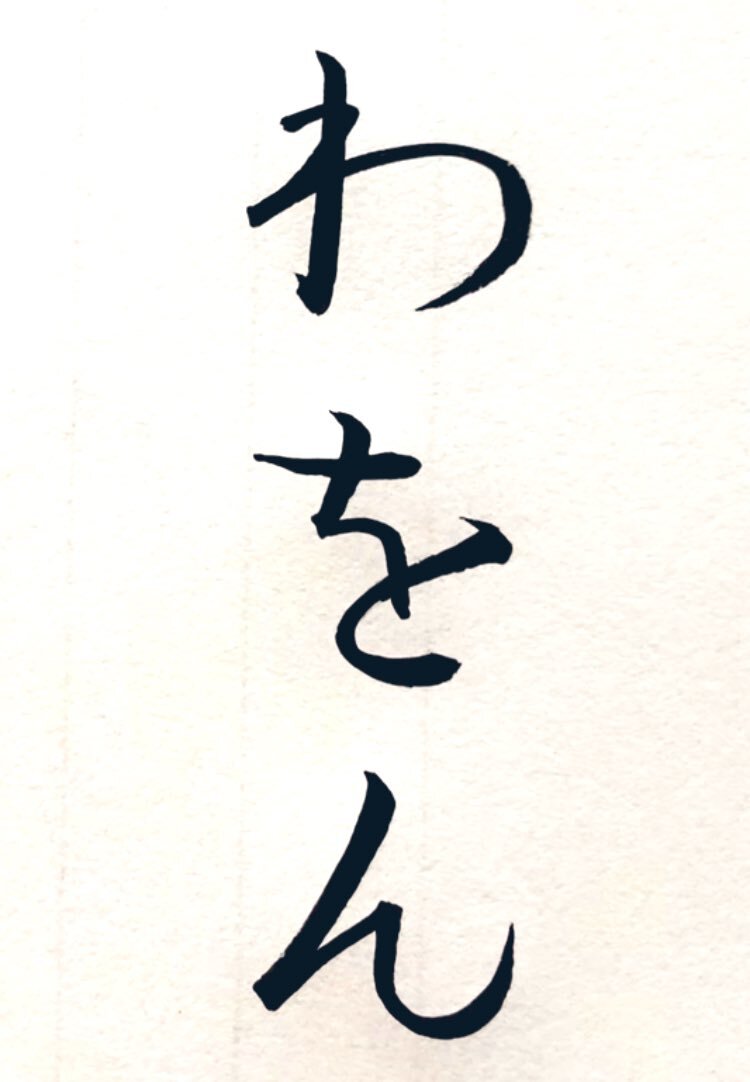 わをん